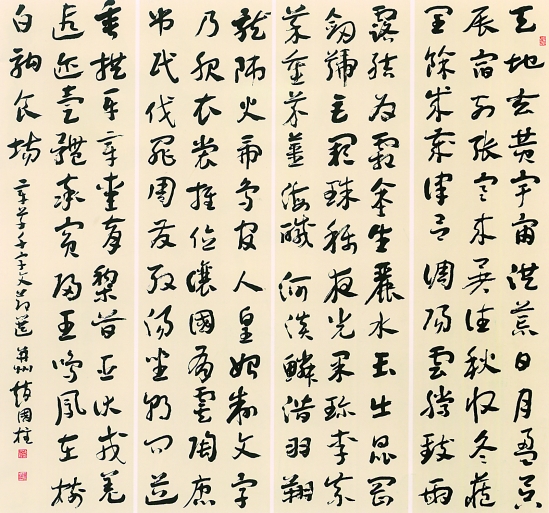 天地玄黃宇宙洪荒日月盈昃
辰宿列張寒來暑往秋收冬藏
閏餘成歲律呂調陽雲騰致雨
露結為霜金生麗水玉出崑岡
劍號巨闕珠稱夜光果珍李柰
菜重芥薑海鹹河淡鱗潛羽翔
龍師火帝鳥官人皇始制文字
乃服衣裳推位讓國有虞陶唐
弔民伐罪周發殷湯坐朝問道
垂拱平章愛育黎首臣伏戎羌
遐邇壹體率賓歸王鳴鳳在樹
白駒食場
章草千字文節選 并州 趙國柱